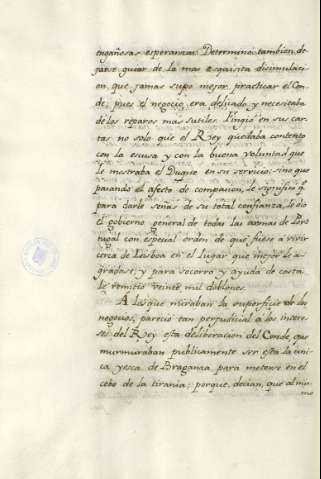 engañosas esperanzas. Determinó tambien de-
jarse guiar de la mas esquisita disimulaci-
on, que jamas supo mejor practicar el Con-
de, pues el negocio era delicado y necesitaba
de los reparos mas sutiles. Fingió en sus car-
tas no solo que el Rey quedaba contento
con la escusa y con la buena voluntad que
le mostraba el Duque en su servicio; sino que
pasando el afecto de compasion, le significó q.
para darle señas de su total confianza, le dió
el gobierno general de todas las armas de Por-
tugal con especial orden de que fuese a vivir
cerca de Lisboa en el Lugar que mejor le a-
gradase; y para socorro y ayuda de costa
le remitió veinte mil doblones.
A los que miraban la superficie de los
negocios, pareció tan perjudicial a los intere-
ses del Rey esta deliberacion del Conde, que
murmuraban publicamente ser esta la uni-
ca yesca de Braganza para meterse en el
cebo de la tirania; porque, decian, que al mis-
mo